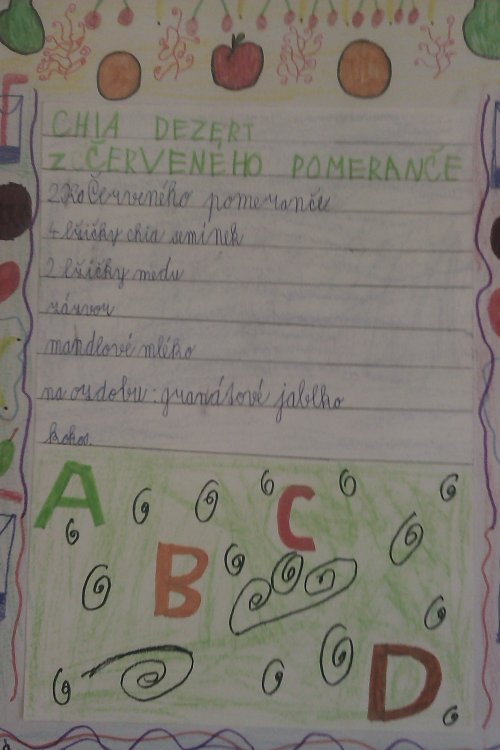 CHIA DEZERT
Z ČERVENÉHO POMERANČE
2 Ks Červeného pomeranče
4 lžičky chia semínek
2 lžičky medu
zázvor
mandlové mléko
na ozdobu: granátové jablko
kokos
A
C
B
D